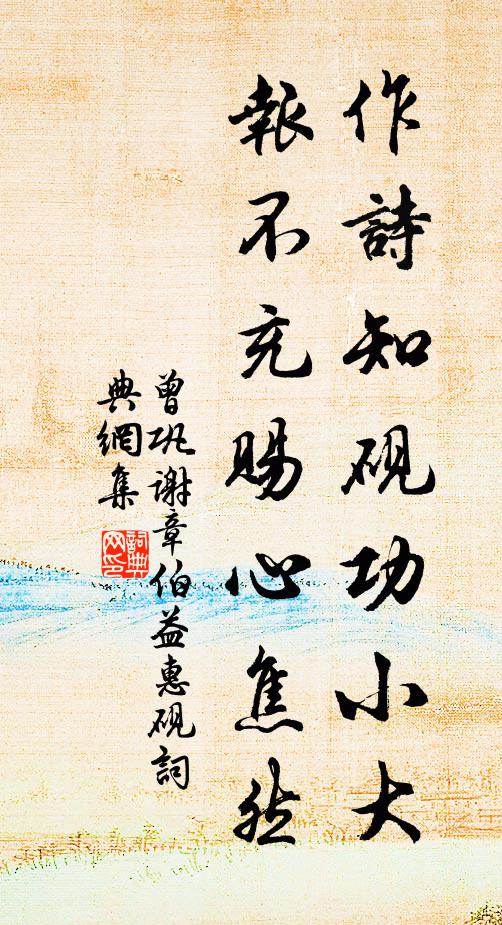 作詩知硯功小大
報不充賜心焦然
曾巩谢章伯益惠硯詞
典網集
詞典
网印